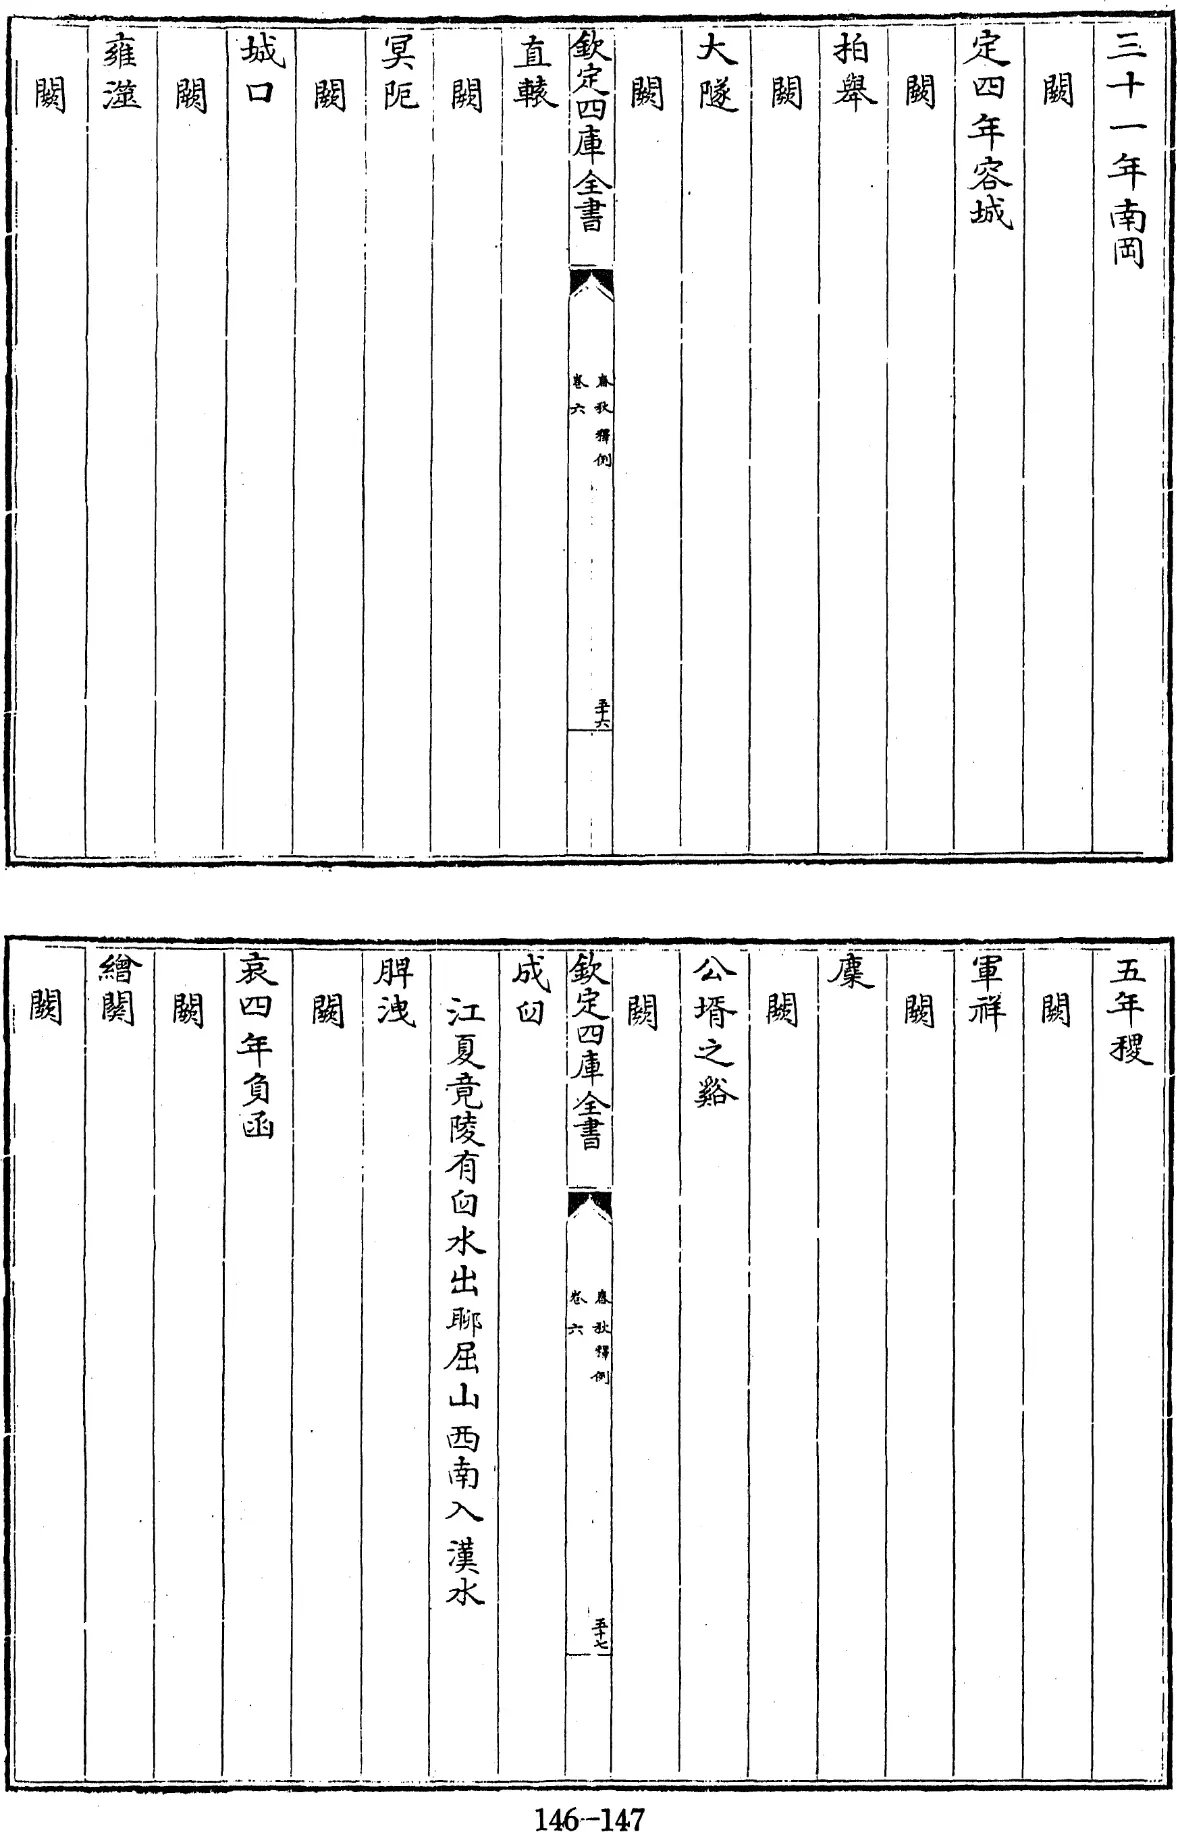 三十一年南岡
闕
定四年容城
闕
柏舉
闕
大隧
闕
欽定四庫全書
春秋釋例
卷六
五十六
直轅
闕
冥阨
闕
城口
闕
雍澨
闕
五年稷
闕
軍祥
闕
麇
闕
公壻之谿
闕
欽定四庫全書
春秋釋例
卷六
五十七
成臼
江夏竟陵有臼水出聊屈山西南入漢水
脾洩
闕
哀四年負函
闕
繒關
闕
146-147